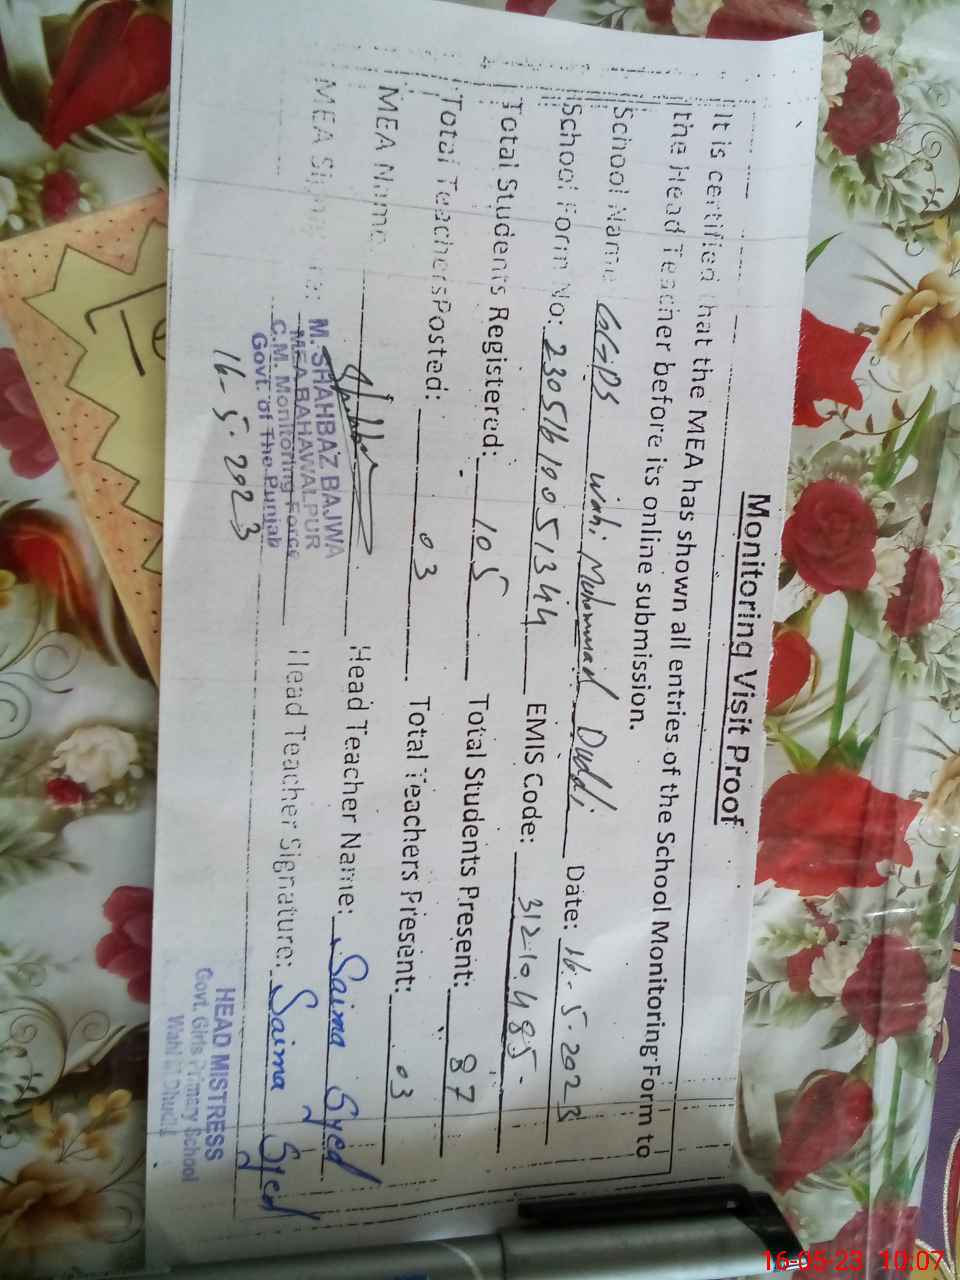 Monitoring Visit Proof
It is certified that the MEA has shown all entries of the School Monitoring Form to
the Head Teacher before its online submission.
School Name GGPS Wahi Muhammad Daddi Date: 16-5-2023
School Form No: 23051610051344 EMIS Code: 31210485
Total Students Registered: 105 Total Students Present: 87
Total Teachers Posted: 03 Total Teachers Present: 03
MEA Name Head Teacher Name: Saima Syed
MEA Head Teacher Signature: Saima Syed
M. SHAHBAZ BAJWA
MEA BAHAWALPUR
C.M. Monitoring Force
Govt. of The Punjab
16-5-2023
HEAD MISTRESS
Govt. Girls Primary School
Wahi
16-05-23 10:07